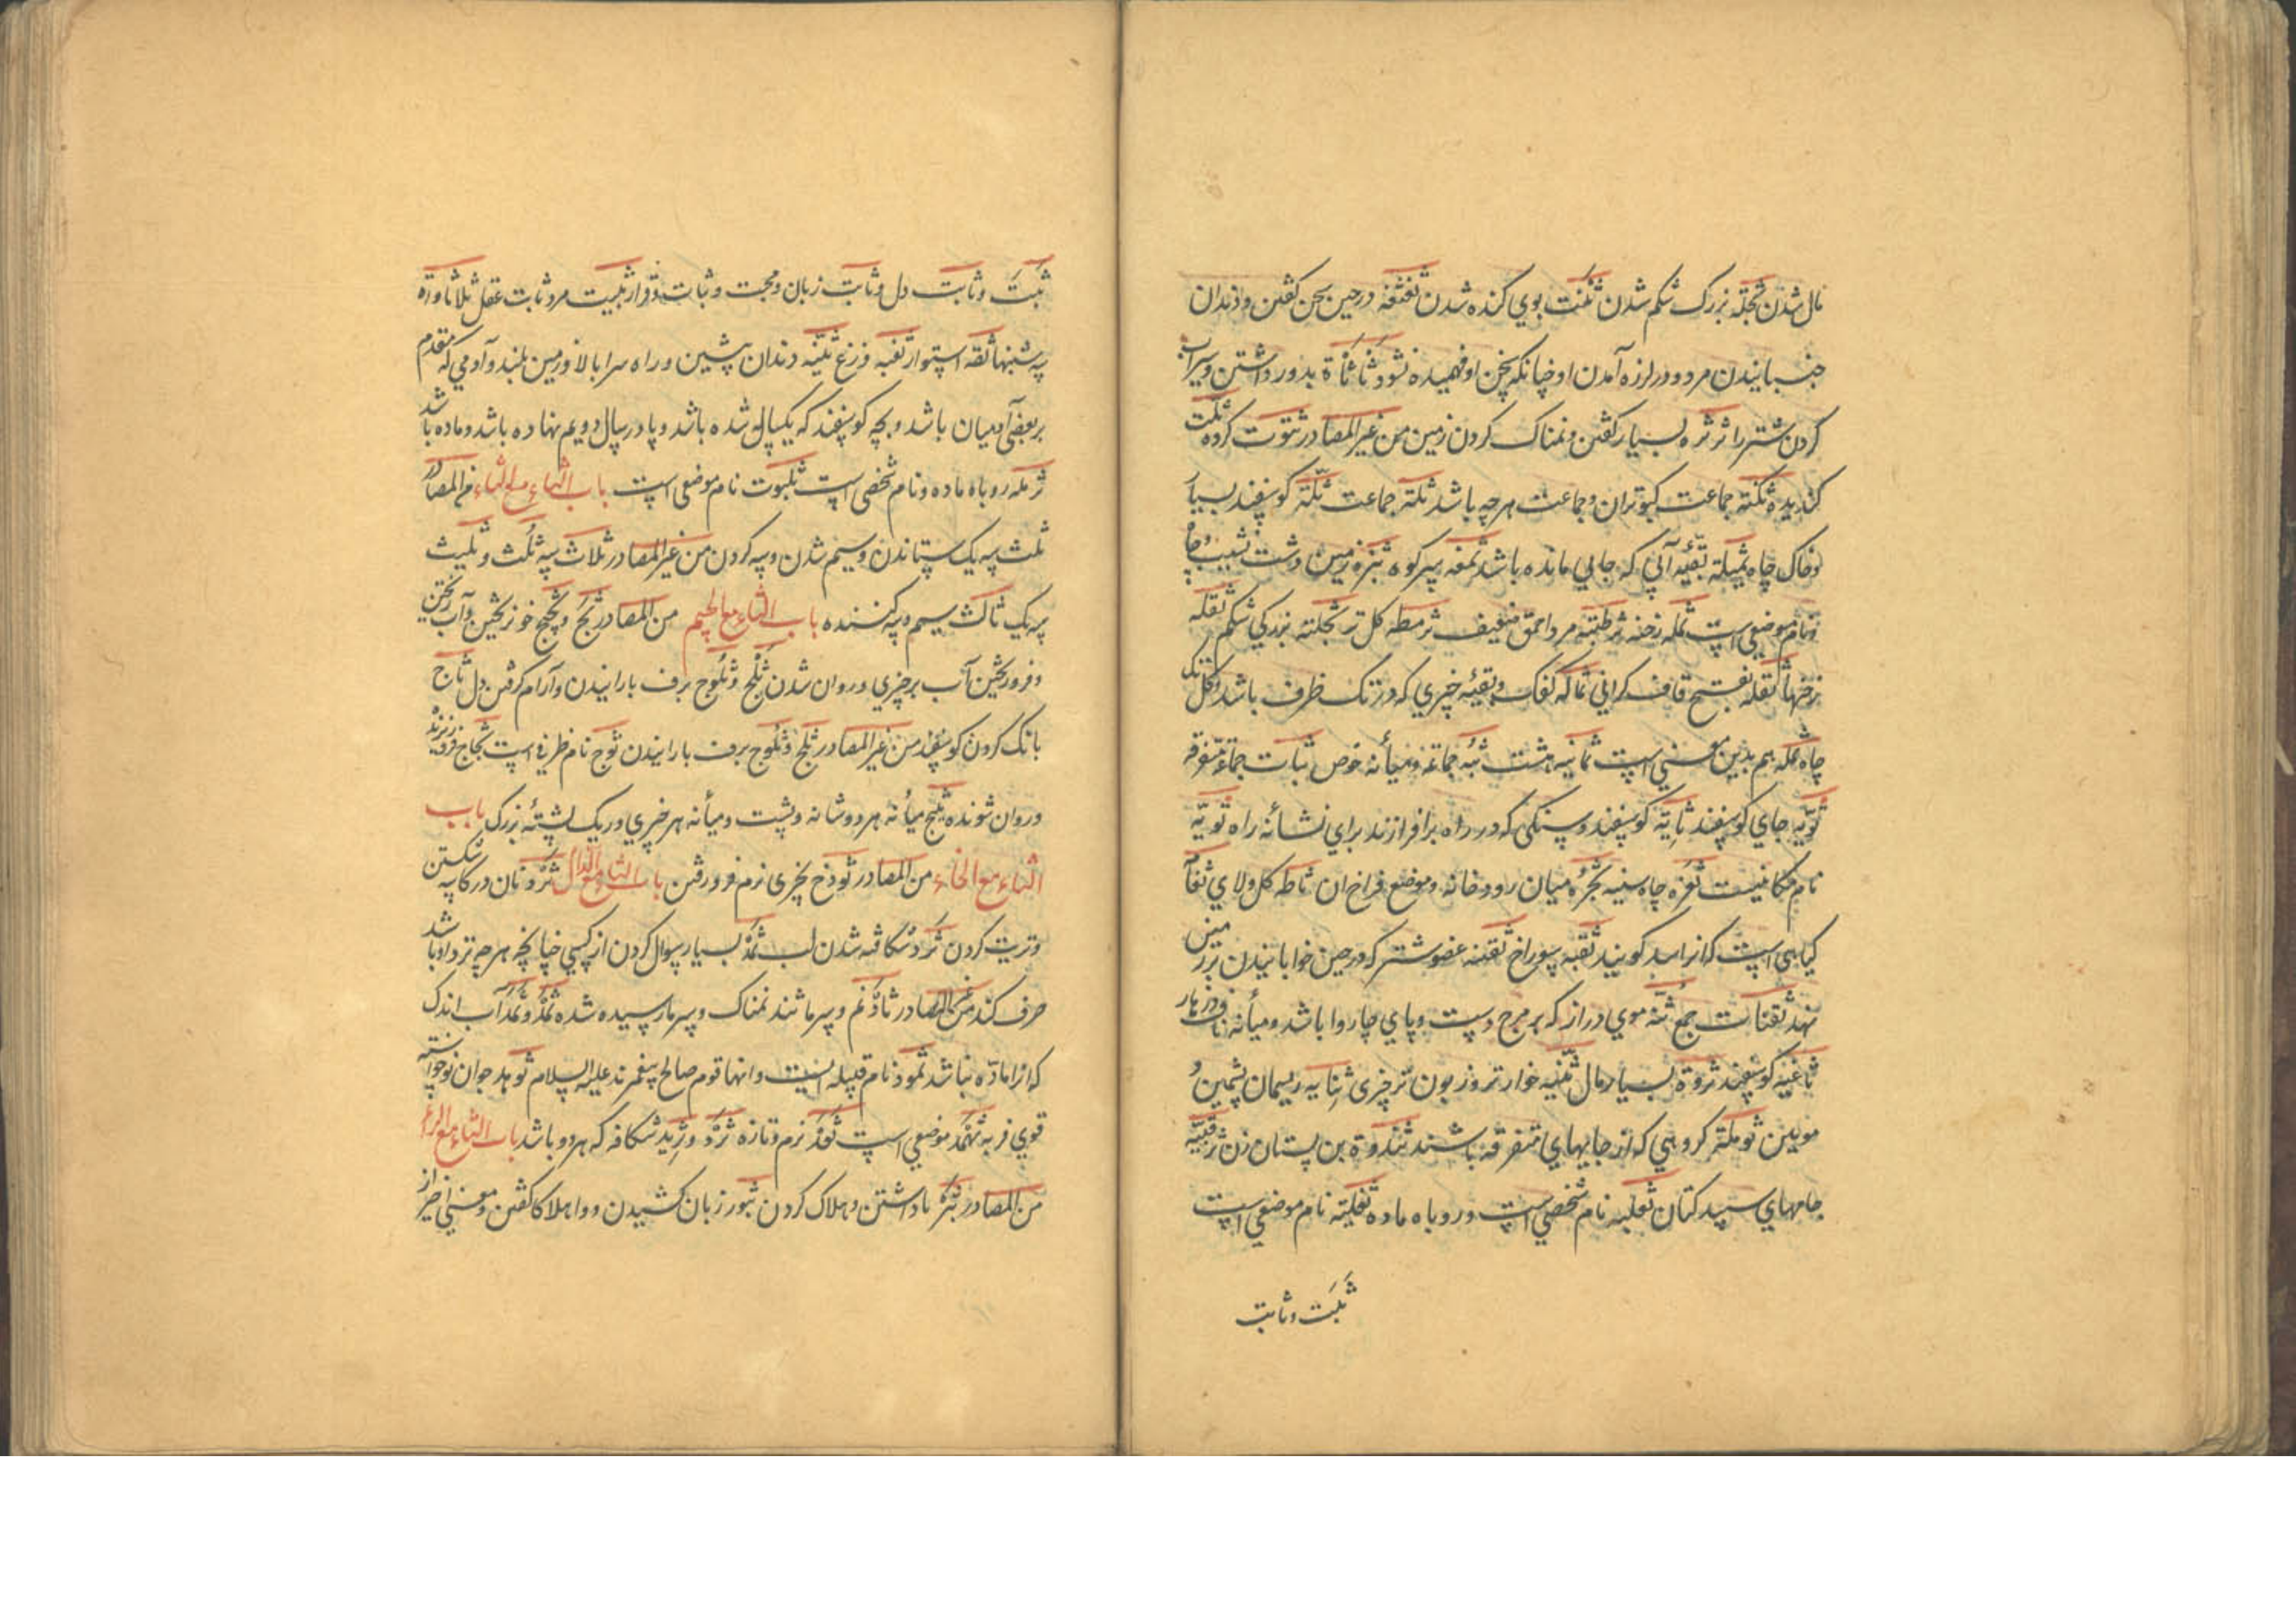 مال شدن ثجله بزرک شکم شدن ثکنت بوی کنده شدن ثغثغه در حین سخن کفتن و دندان
جنبانیدن مردو در لرزه آمدن او چنانکه سخن او فهمیده نشود ثاثاة بدور داشتن و سیراب
کردن شتر را ثرثره بسیار کفتن و نمناک کردن زمین من غیر المصادر ثتوت کرده
کندیده ثکنة جماعت کبوتران و جماعت هر چه باشد ثلة جماعت ثلة کوسفند بسیار
و خاک چاه ثمیلة بقیه آبی که جایی مانده باشد ثمغه سر کوه ثبزه زمین دشت نشیب و چا
و نام موضعی است ثلمه رخنه مرد احمق ضعیف ثرمطه کل تر ثجلة بزرکی شکم ثقله
رختها ثقله بفتح قاف کرانی ثماله کفک و بقیه چیزی که در تنک ظرف باشد و کل تنک
چاه ثمله هم بدین معنی است ثمانیه هشت ثبه جماعة و میانه حوض ثبات جماعة متفرقه
ثویه جای کوسفند ثایة کوسفند و سنکی که در راه برافرازند برای نشانه راه ثویة
نام مکانیست ثغره چاه سینه ثجره میان رودخانه و موضع فراخ ان ثاطه کل ولای ثغاة
کیاهی است که انرا سپد کویند ثقبه سوراخ ثفنه عضو شتر که در حین خوابانیدن بر زمین
نهد ثفنات جمع ثنه موی دراز که بر مرج دست و پای چاروا باشد و میانه ناف و زهار
ثاغیه کوسفند ثروة بسیار مال خوارتر و زبون تر چیزی ثنایه ریسمان پشمین و
مویین کروهی که از جایهای متفرقه باشند ثندوة بن پستان زن ثرقبیه
جامهای سپید کتان ثعلبه نام شخصی است و روباه ماده ثعلبیه نام موضعی است
ثبت و ثابت
ثبت و ثابت دل و ثابت زبان و حجت و ثبات و قرار ثبیت مرد ثابت عقل ثلاثاوة
سه شنبها ثقه استوار ثغبه وزغ ثنیه دندان پیشین و راه سرابالا و زمین بلند و آدمی که مقدم
بر بعضی آدمیان باشد و بچه کوسفند که یکساله شده باشد و پا در سال دویم نهاده باشد و ماده باشد
ثرمله روباه ماده و نام شخصی است ثلبوت نام موضعی است باب الثاء مع الثاء من المصادر
ثلث سه یک ستاندن و سیم شدن و سه کردن من غیر المصادر ثلاث سه ثلث و ثلیث
سه یک ثالث سیم و سه کننده باب الثاء مع الجیم من المصادر ثج و ثجج خو ریختن و آب ریختن
و فرو ریختن آب بر چیزی و روان شدن ثلج و ثلوج برف بارانیدن و آرام کرفتن دل ثاج
بانک کردن کوسفند من غیر المصادر ثلج و ثلوج برف بارانیدن ثوج نام ظرفی است ثجاج فرو ریزنده
و روان شونده ثبج میانه هر دو شانه و پشت و میانه هر چیزی و ریک پشته بزرک باب
الثاء مع الخاء من المصادر ثوخ بچیزی نرم فرو رفتن باب الثاء مع الدال ثرد نان در کاسه شکستن
و تریت کردن ثرد شکافته شدن لب ثمد بسیار سوال کردن از کسی چنانچه هر چه نزد او باشد
صرف کند من غیر المصادر ثاد نم و سرما ثئد نمناک و سرما رسیده شده ثمد و ثمد آب اندک
که انرا ماده نباشد ثمود نام قبیله ایست و انها قوم صالح پیغمبرند علیه السلام ثوهد جوان نوخواسته
قوی فربه ثهمد موضعی است ثعد نرم و تازه ثرد و ثرید شکافه که هر دو باشد باب الثاء مع الراء
من المصادر ثبر باداشتن و هلاک کردن ثبور زبان کشیدن و واهلاکا کفتن و معنی اخیر از